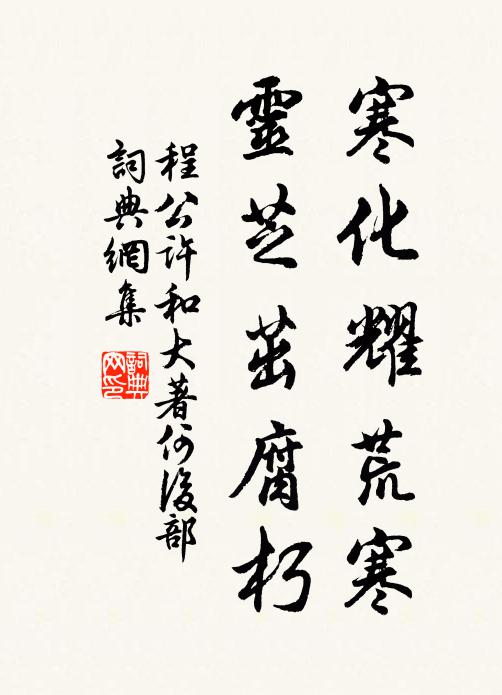 寒化耀荒寒
靈芝茁腐朽
程公許和大著何後部
詞典網集
詞典網印